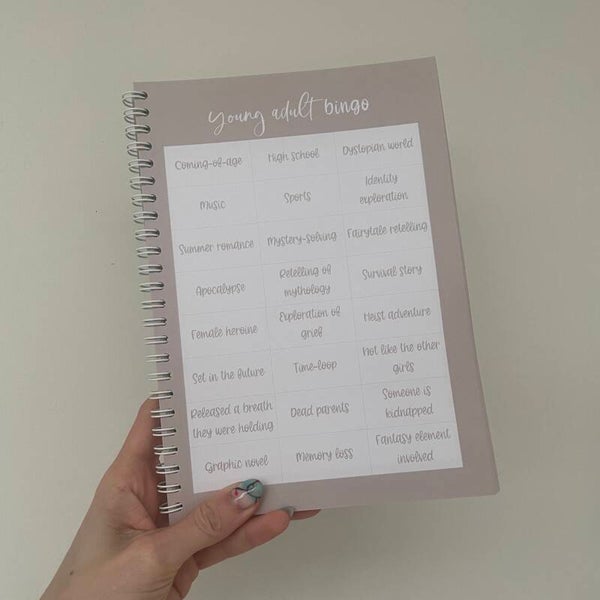 Young adult bingo
Coming-of-age High school Dystopian world
Music Sports Identity
exploration
Summer romance Mystery-solving Fairytale retelling
Apocalypse Retelling of
mythology Survival story
Female heroine Exploration of
grief Heist adventure
Set in the future Time-loop Not like the other
girls
Released a breath
they were holding Dead parents Someone is
kidnapped
Graphic novel Memory loss Fantasy element
involved